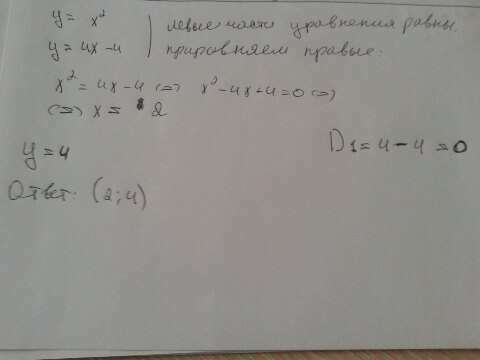 y = x²
y = 4x - 4
левые части уравнения равны.
приравняем правые.
x² = 4x - 4 (=) x² - 4x + 4 = 0 (=)
(=) x = 2
y = 4
D1 = 4 - 4 = 0
Ответ: (2; 4)